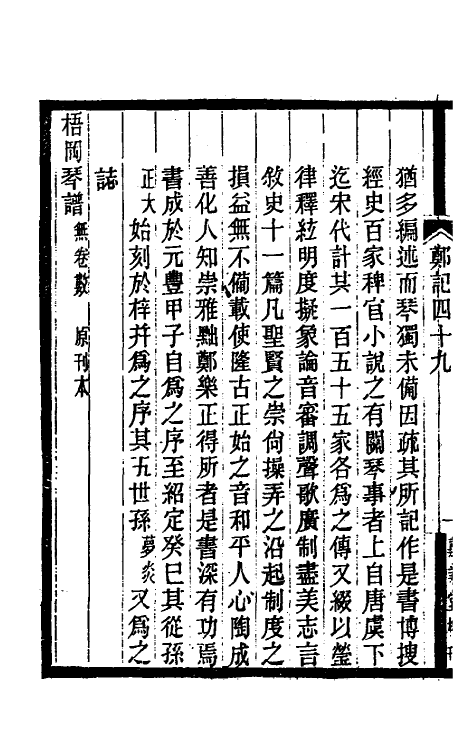 鄭記四十九
猶多編述而琴獨未備因疏其所記作是書博搜
經史百家稗官小說之有關琴事者上自唐虞下
迄宋代計其一百五十五家各為之傳又綴以瑩
律釋絃明度擬象論音審調聲歌廣制盡美志言
敘史十一篇凡聖賢之崇尙操弄之沿起制度之
損益無不備載使隆古正始之音和平人心陶成
善化人知崇雅黜鄭樂正得所者是書深有功焉
書成於元豐甲子自為之序至紹定癸巳其從孫
正大始刻於梓并為之序其五世孫夢炎又為之
誌
梧岡琴譜無卷數 原刊本